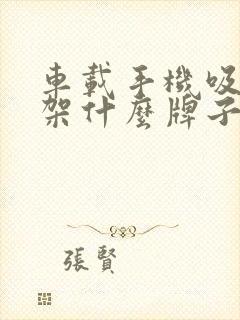 車載手機吸
架什麼牌子
張賢